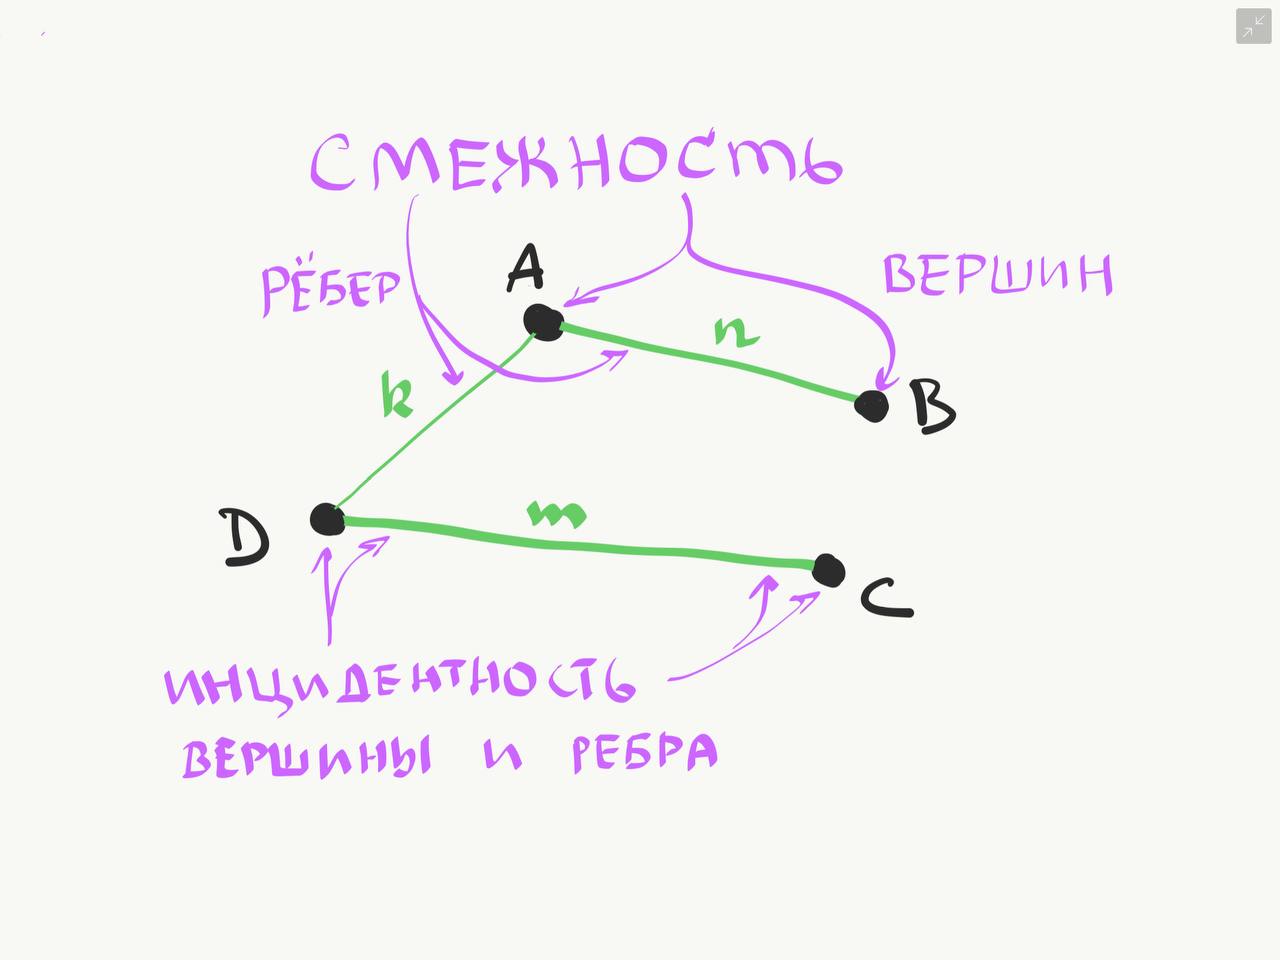 СМЕЖНОСТЬ
РЁБЕР
A
ВЕРШИН
n
k
B
D
m
C
ИНЦИДЕНТНОСТЬ
ВЕРШИНЫ И РЕБРА